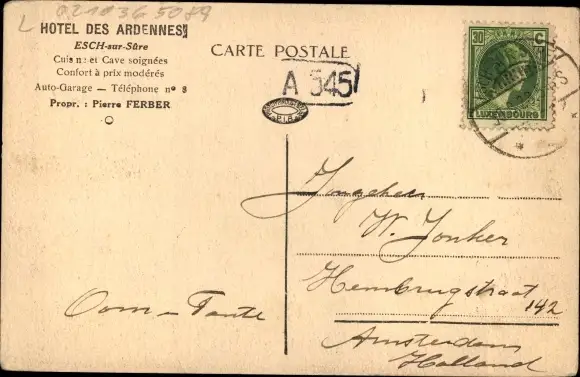 HOTEL DES ARDENNES
ESCH-sur-Sûre
Cuisine et Cave soignées
Confort à prix modérés
Auto-Garage — Téléphone nº 8
Propr. : Pierre FERBER
CARTE POSTALE
A 545
30 C
LUXEMBOURG
Jongeheer
W. Jonker
Hembrugstraat 142
Amsterdam
Holland
Oom - Tante